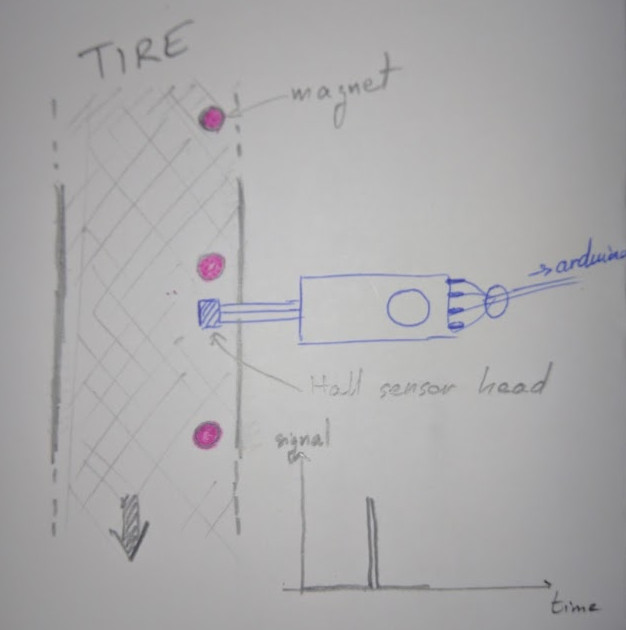 TIRE
magnet
→arduino
Hall sensor head
signal
time